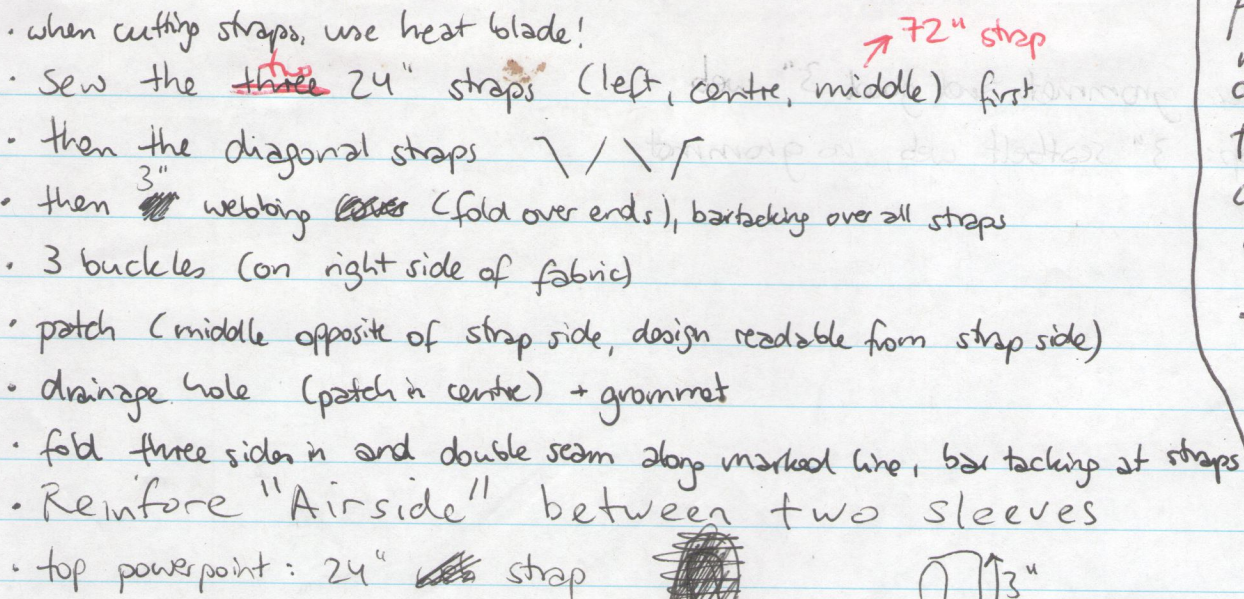 · when cutting straps, use heat blade!
72" strap
· sew the three two 24" straps (left, centre, middle) first
· then the diagonal straps
· then 3" webbing (fold over ends), bartacking over all straps
· 3 buckles (on right side of fabric)
· patch (middle opposite of strap side, design readable from strap side)
· drainage hole (patch in centre) + grommet
· fold three sides in and double seam along marked line, bar tacking at straps
· Reinfore "Airside" between two sleeves
· top powerpoint: 24" strap
3"